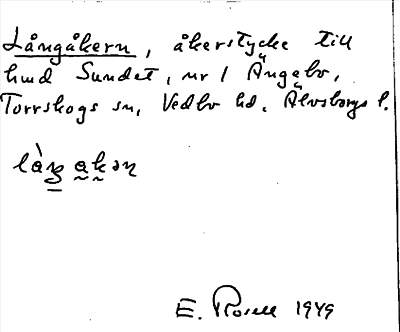 Långåkern, åkerstycke till
hmd Sundet, nr 1 Ängebo,
Torrskogs sn, Vedbo hd. Älvsborgs l.
làŋ akən
E. Rosell 1949